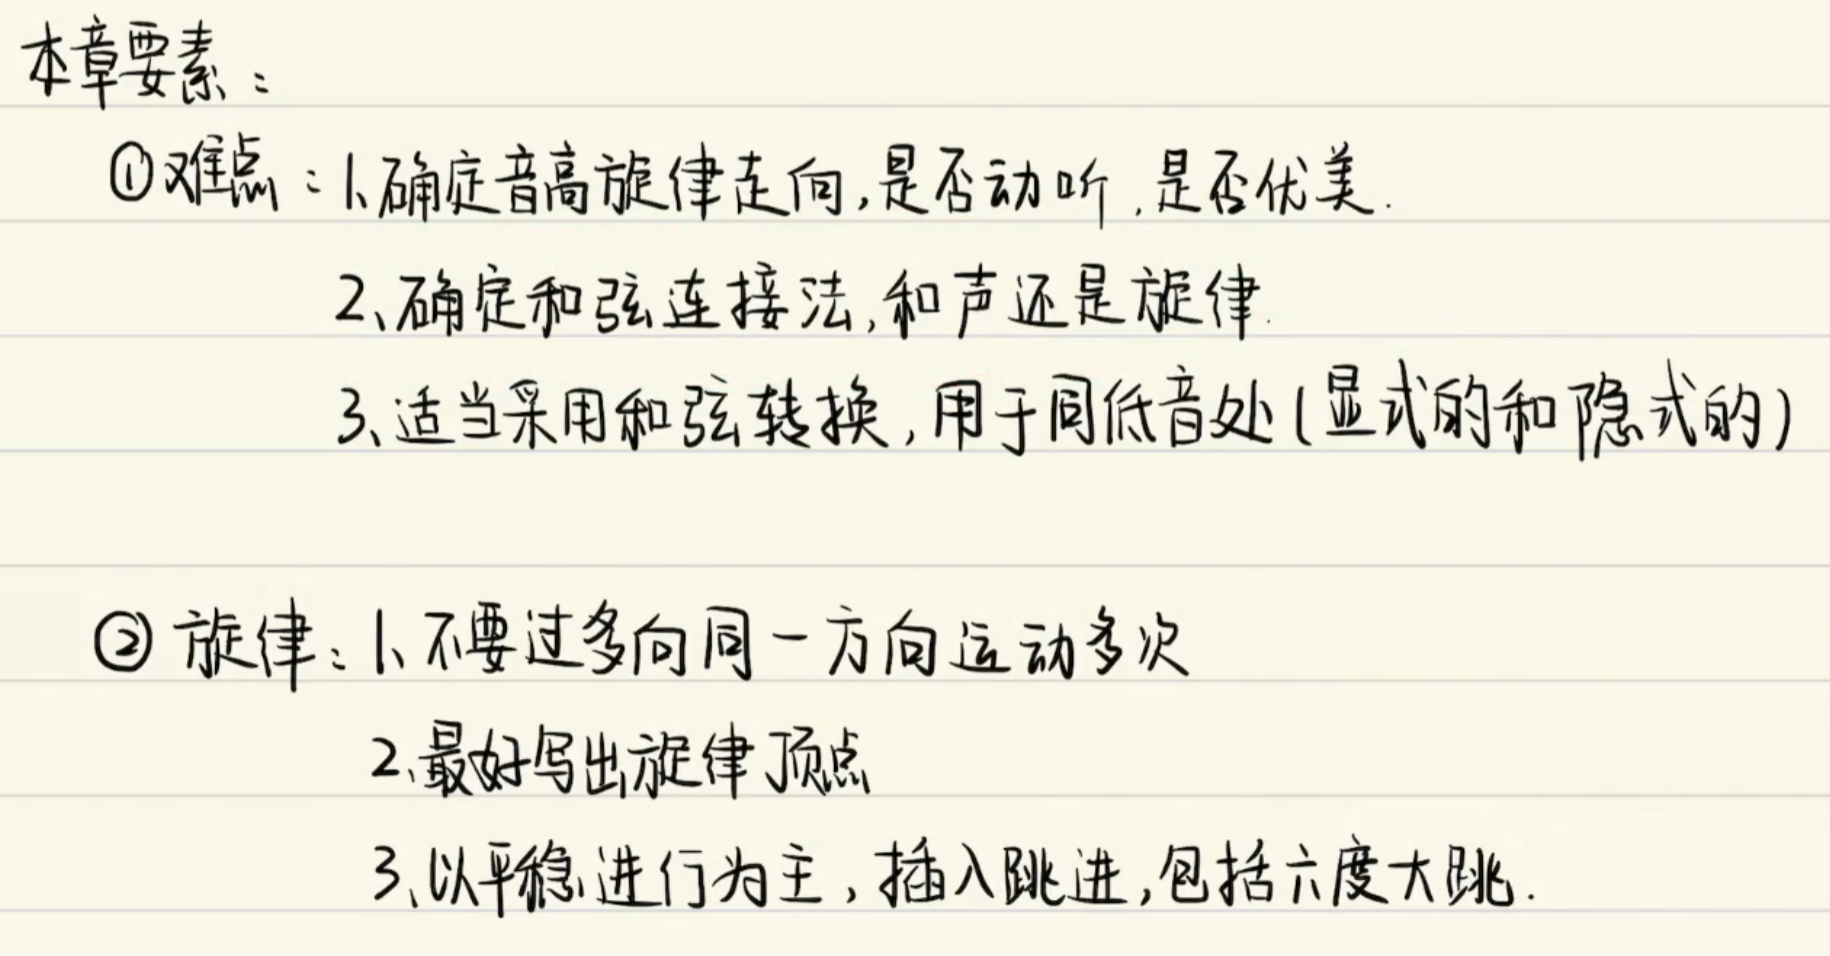 本章要素：
①难点：1、确定音高旋律走向,是否动听,是否优美.
2、确定和弦连接法,和声还是旋律.
3、适当采用和弦转换,用于同低音处(显式的和隐式的)
②旋律：1、不要过多向同一方向运动多次
2、最好写出旋律顶点
3、以平稳进行为主,插入跳进,包括六度大跳.